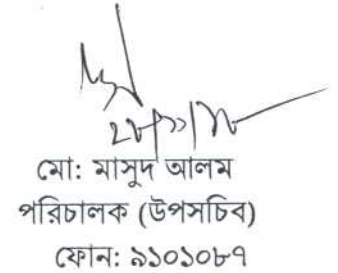 মো: মাসুদ আলম
পরিচালক (উপসচিব)
ফোন: ৯১০১০৮৭